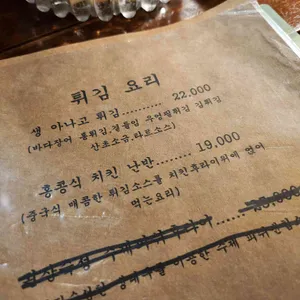 튀김 요리
생 아나고 튀김.......... 22.000
(바다장어 통튀김,곁들임 우엉튀김 김튀김
산초소금,타르소스)
홍콩식 치킨 난반........ 19.000
(중국식 매콤한 튀김소스를 치킨후라이위에 얹어
먹는요리)